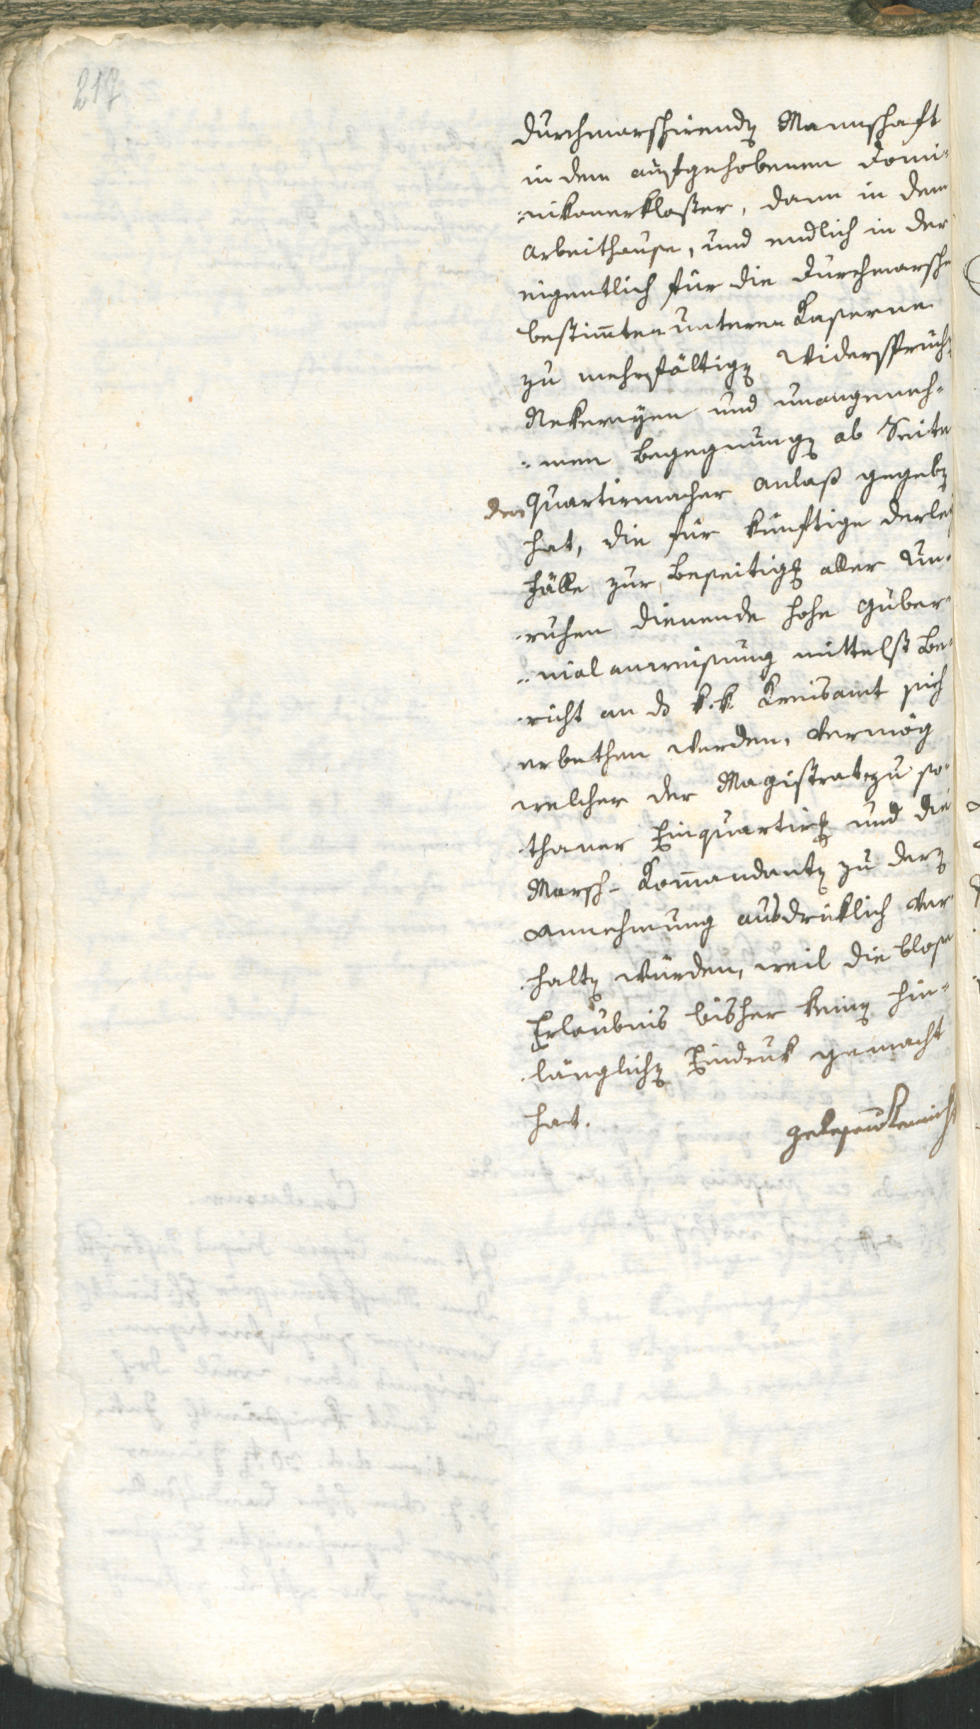 217
durchmarschirende Mannschaft
in dem aufgehobenen Domi-
nikanerkloster, dann in dem
Arbeithause, und endlich in der
eigentlich für die Durchmarsche
bestimmten unteren Kaserne
zu mehrfältigen Widersprüche
Nekereyen und unangeneh-
men Begegnungen ab Seite
der Quartirmacher Anlaß gegeben
hat, die für künftige derlei
Fälle zur Beseitigung aller Un-
ruhen dienende hohe Guber-
nial anweisung mittelst Be-
richt an das k. k. Kreisamt sich
erbethen werden, vermög
welcher der Magistrat zu so-
thaner Einquartirung und die
Marsch-Kommandanten zu deren
Annehmung ausdrüklich ver-
halten würden, weil die blose
Erlaubnis bisher keinen hin-
länglichen Eindruk gemacht
hat.
Conclusum